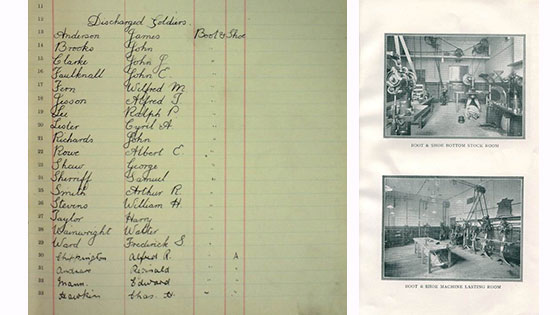 11
12
Discharged Soldiers.
13 Anderson James Boot & Shoe
14 Brooks John "
15 Clarke John "
16 Faulknall John C. "
17 Fern Wilfred M. "
18 Jesson Alfred T "
19 Lee Ralph P. "
20 Lister Cyril A. "
21 Richards John "
22 Rowe Albert E. "
23 Shaw George "
24 Sherriff Samuel "
25 Smith Arthur R. "
26 Stevens William H. "
27 Taylor Harry "
28 Wainwright Walter "
29 Ward Frederick S. "
30 Alfred R. " A
31 Andrew Reginald "
32 Mann Edward "
33 Chas. H. "
BOOT & SHOE BOTTOM STOCK ROOM
BOOT & SHOE MACHINE LASTING ROOM